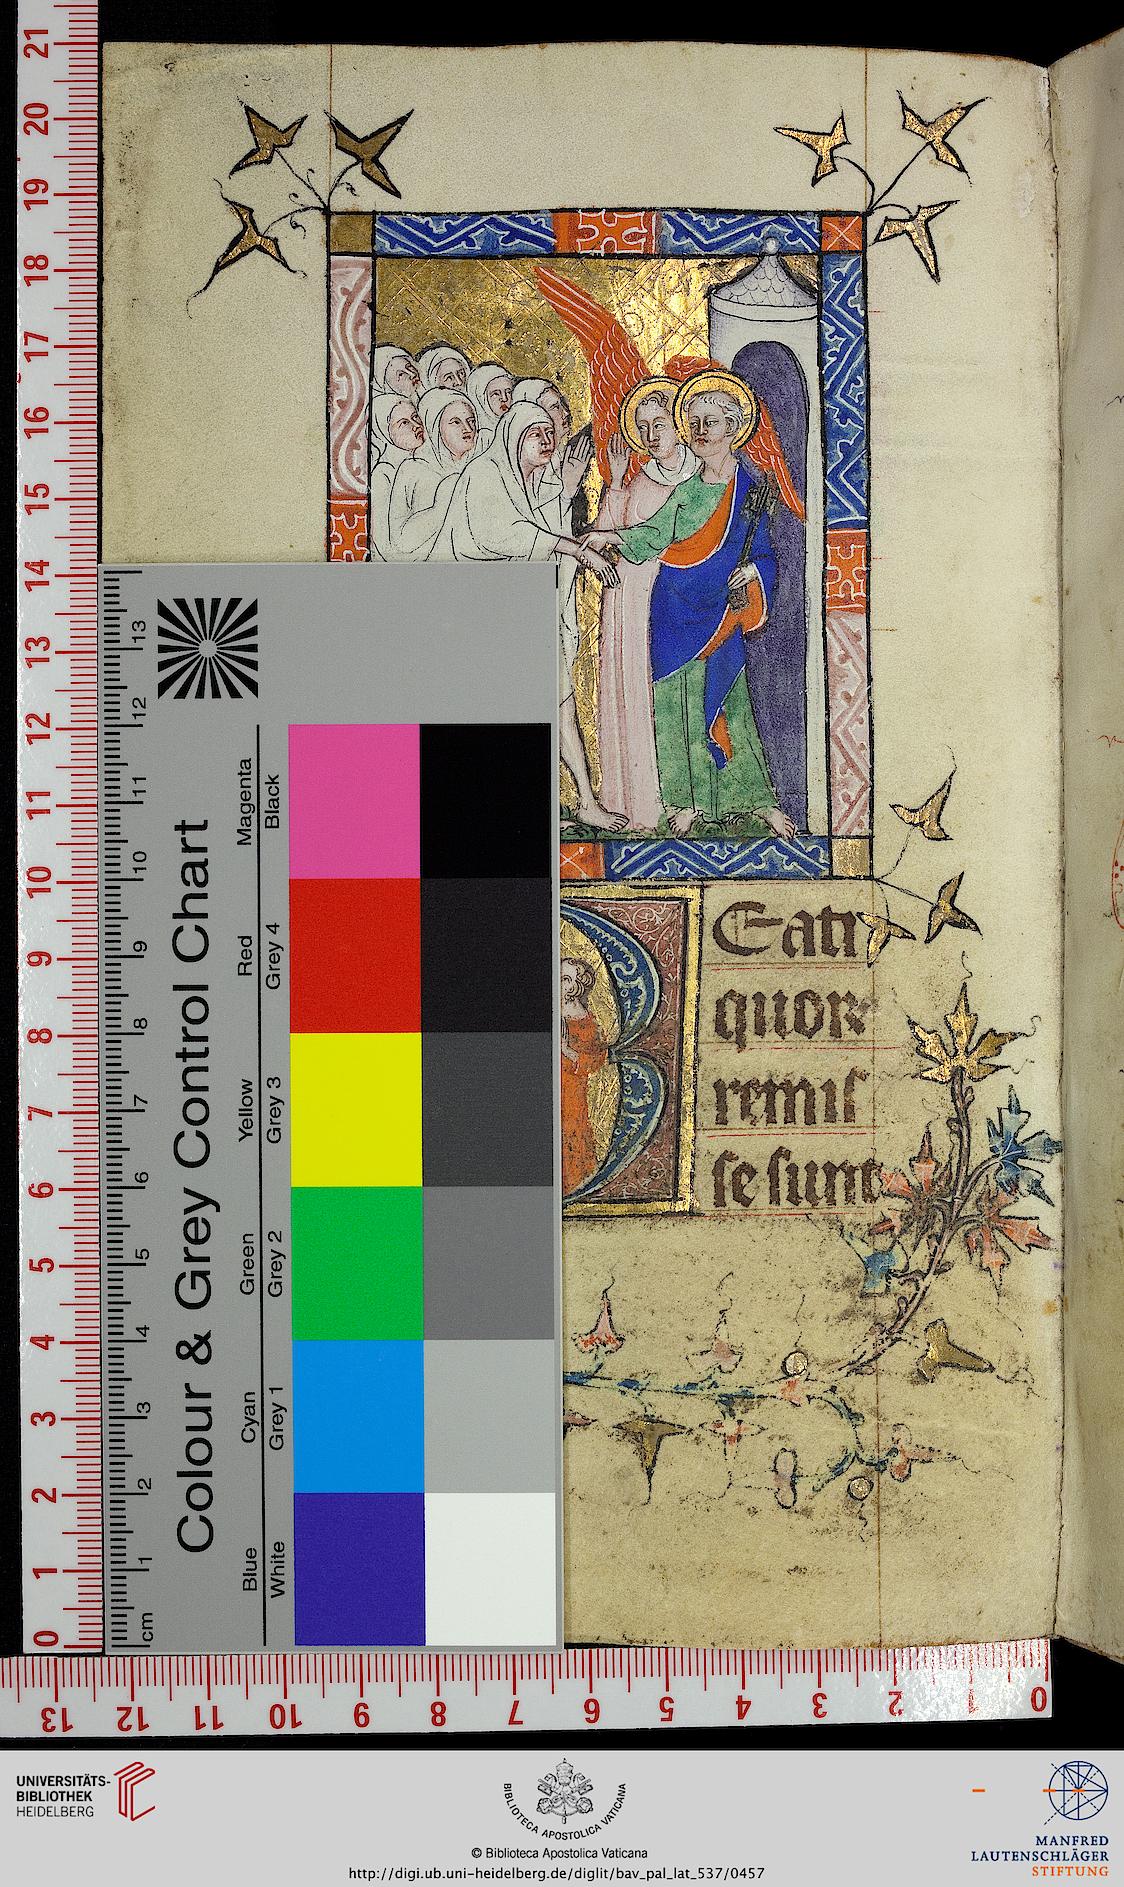 21
20
19
18
17
16
15
14
13
12
11
10
9
8
7
6
5
4
3
2
1
0
13
12
11
10
9
8
7
6
5
4
3
2
1
cm
Colour & Grey Control Chart
Magenta
Black
Red
Grey 4
Yellow
Grey 3
Green
Grey 2
Cyan
Grey 1
Blue
White
Eati
quorr
remis
se sunt
13 12 11 10 9 8 7 6 5 4 3 2 1 0
UNIVERSITÄTS-
BIBLIOTHEK
HEIDELBERG
BIBLIOTECA APOSTOLICA VATICANA
© Biblioteca Apostolica Vaticana
http://digi.ub.uni-heidelberg.de/diglit/bav_pal_lat_537/0457
MANFRED
LAUTENSCHLÄGER
STIFTUNG